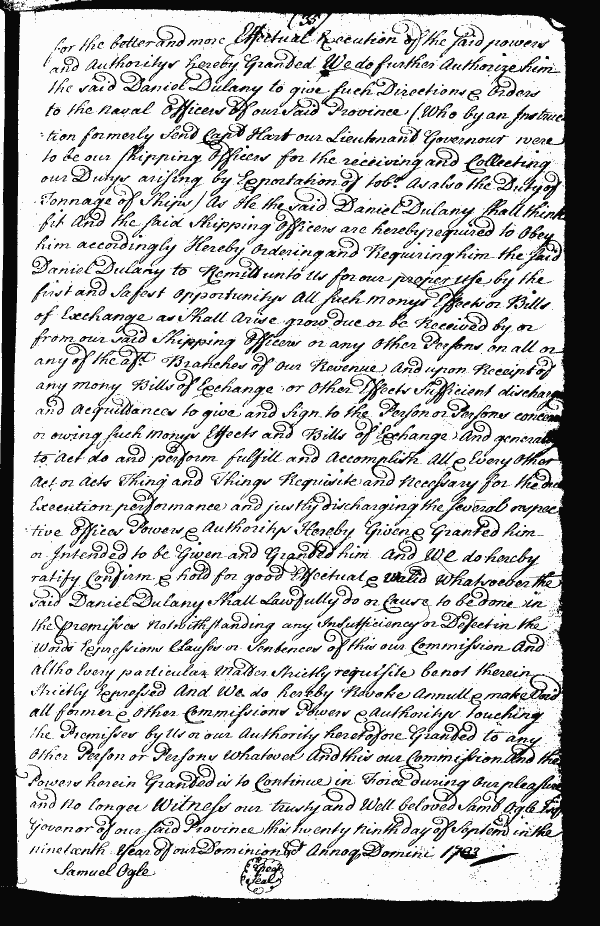 (35)
for the better and more Effectual Execution of the said powers
and Authoritys hereby Granded We do further Authorize him
the said Daniel Dulany to give such Directions & orders
to the Naval Officers of our Said Province (Who by an Instruc
tion formerly Send Capt Hart our Lieutenand Governour were
to be our shipping Officers for the receiving and Collecting
our Dutys arising by Exportation of tobo. As also the Duty of
Tonnage of Ships) As He the said Daniel Dulany shall think
fit And the said Shipping Officers are hereby required to Obey
him accordingly Hereby Ordering and Requiring him the said
Daniel Dulany to Remitt unto Us for our proper use by the
first and Safest opportunitys All such monys Effects or Bills
of Exchange as Shall Arise grow due or be Received by or
from our said Shipping Officers or any other Persons on all or
any of the afd. Branches of our Revenue And upon Receipt of
any mony Bills of Exchange or other Effects Sufficient discharg
and Acquidances to give and Sign to the Person or Persons concern
or owing such monys Effects and Bills of Exchange And general
to Act do and perform fulfill and Accomplish All & Every other
Act or Acts Thing and Things Requisite and Necessary for the due
Execution performance and justly discharging the several respec
tive Offices Powers & Authoritys Hereby Given & Granted him
or Intended to be Given and Granded him And We do hereby
ratify Confirm & hold for good Effectual & Valid Whatsoever the
said Daniel Dulany Shall Lawfully do or Cause to be done in
the Premisses Notwithstanding any Insufficiency or Defect in the
Words Expressions Clauses or Sentences of this our Commission And
altho Every particular Matter Strictly requisite be not therein
Strictly Expressed And We do hereby Revoke Annull & make Void
all former & other Commissions Powers & Authoritys touching
the Premisses by Us or our Authority heretofore Granded to any
Other Person or Persons Whatover And this our Commission And the
Powers herein Granded is to Continue in Force during Our pleasure
and No longer Witness our trusty and Well beloved Saml. Ogle Esqr
Govenor of our said Province this twenty Ninth day of Septem in the
nineteenth Year of our Dominion &c Annoq Domini 1733
Samuel Ogle
Great
Seal